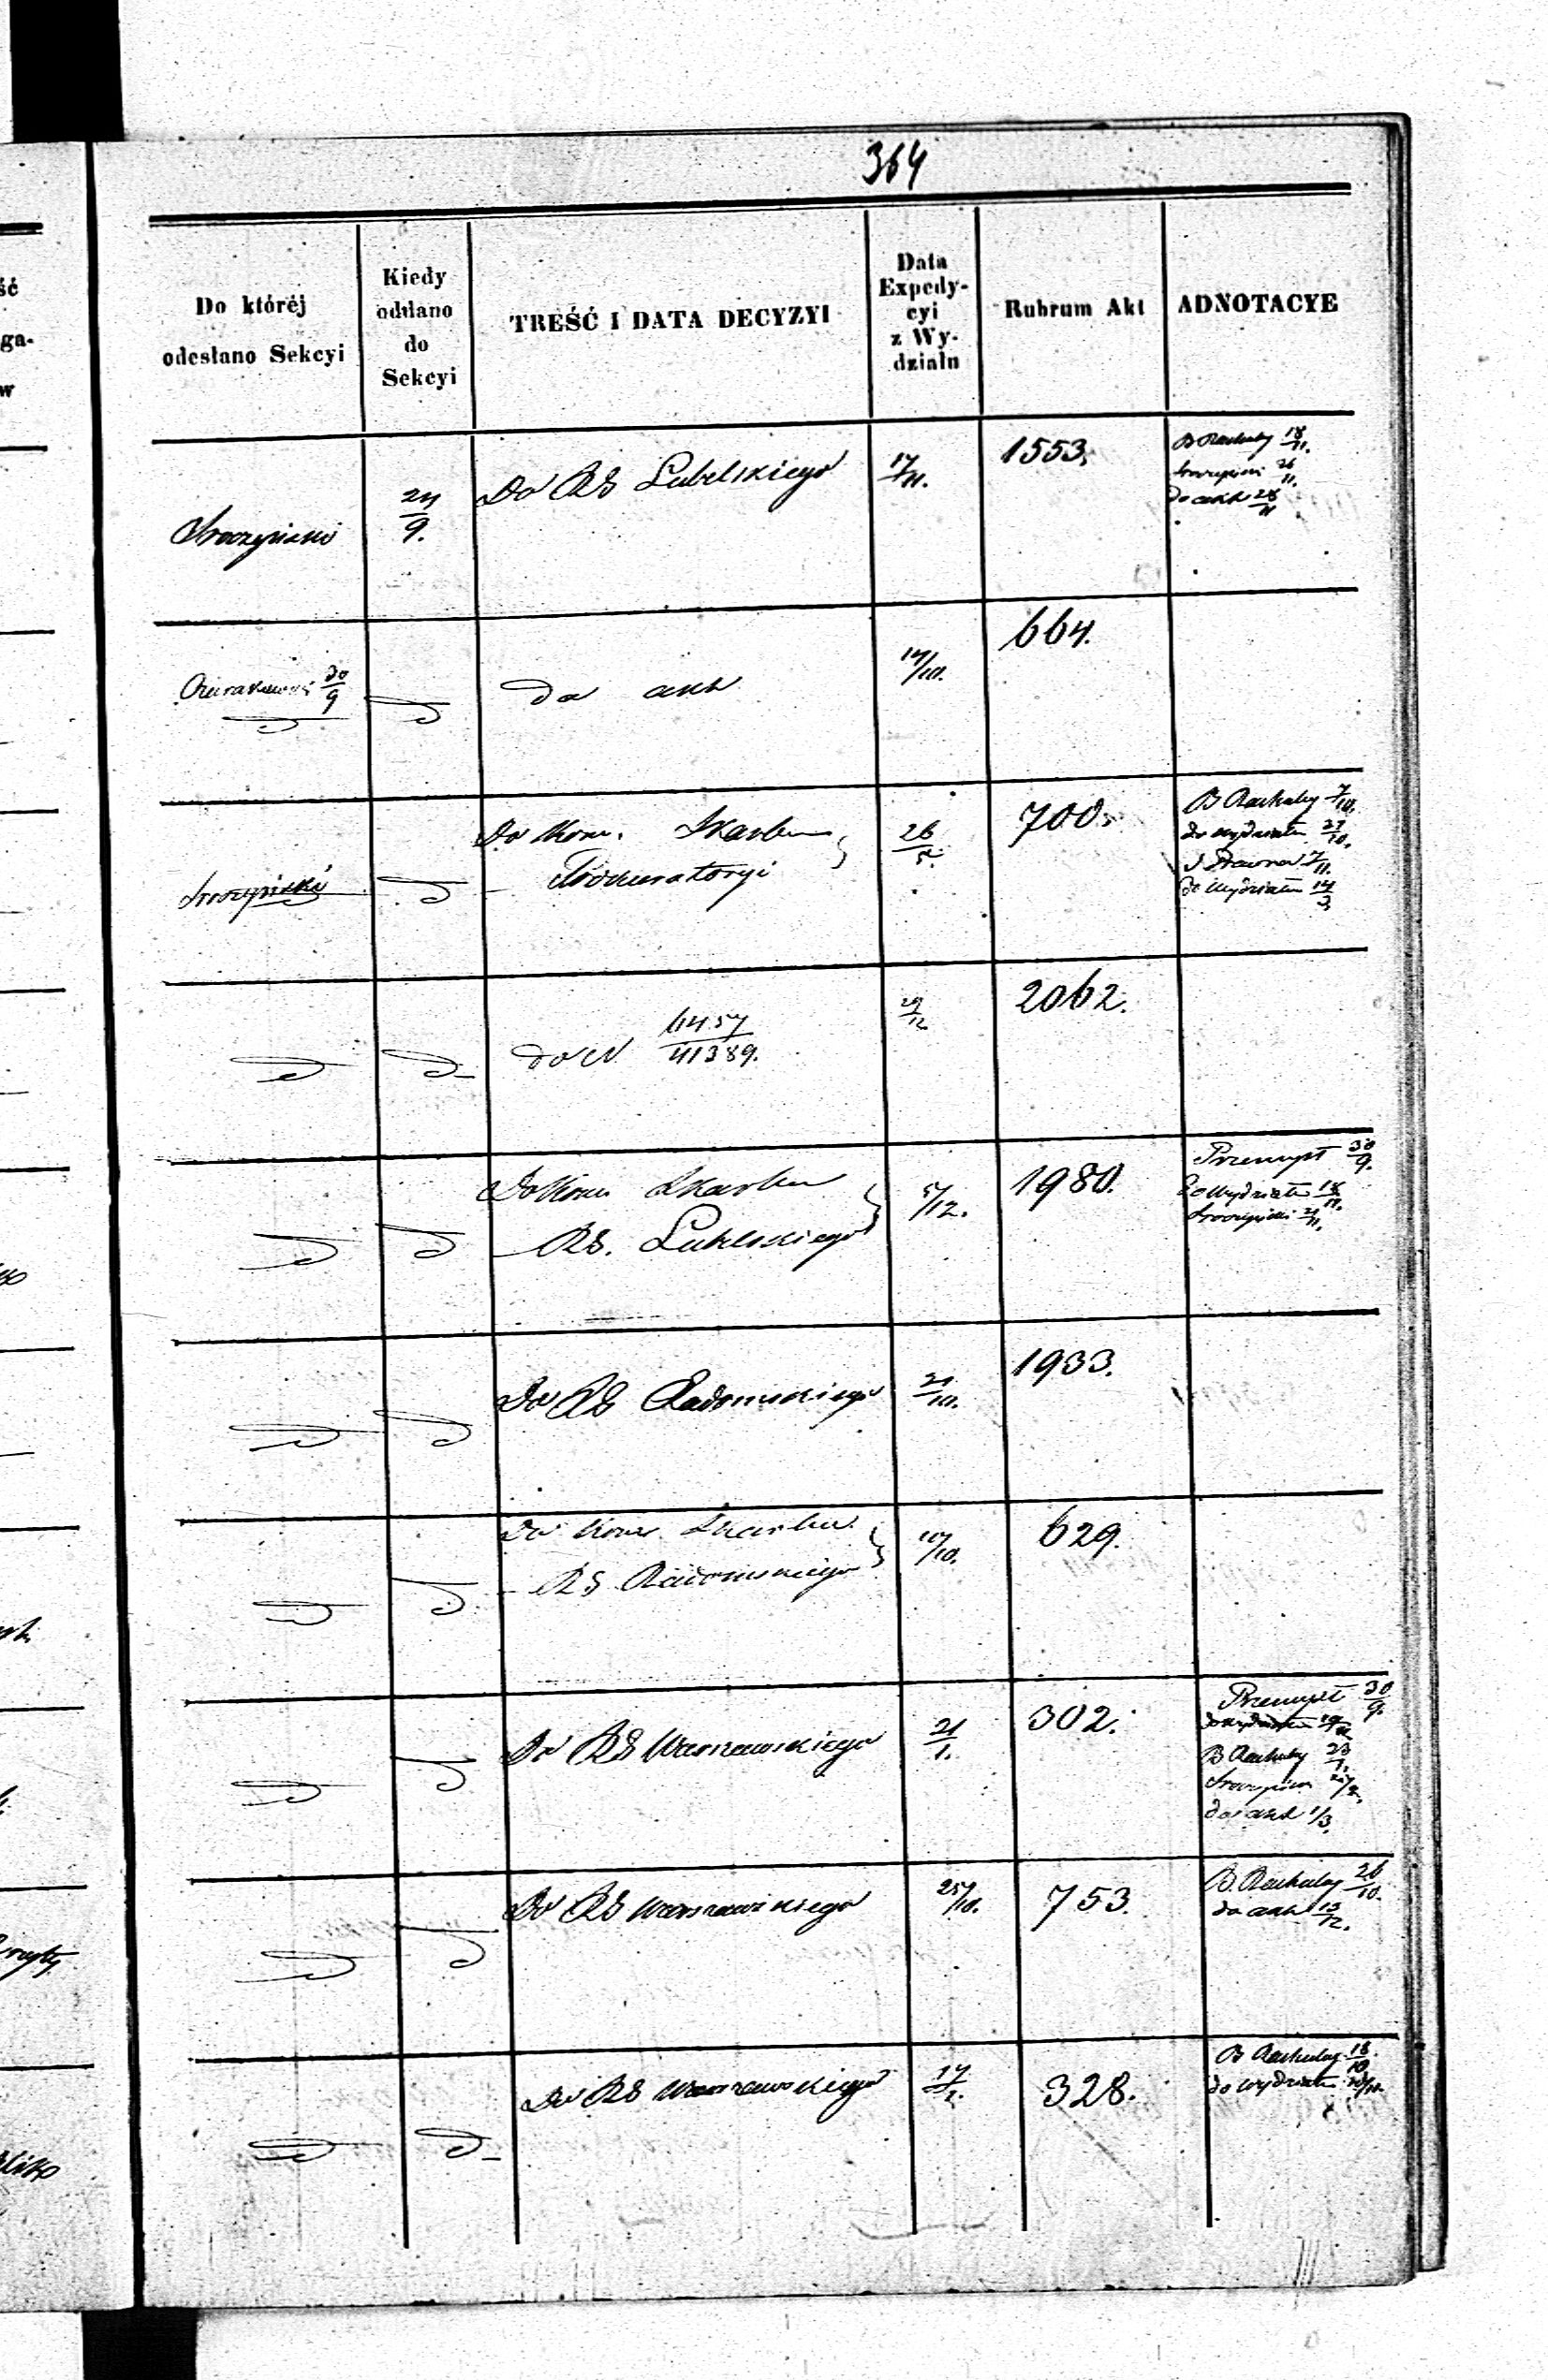 364
Do któréj
odesłano Sekcyi
Kiedy
oddano
do
Sekcyi
TREŚĆ I DATA DECYZYI
Data
Expedy-
cyi
z Wy-
działu
Rubrum Akt
ADNOTACYE
24/9.
Do RG Lubelskiego
17/11.
1553.
B Rachuby 18/11.
26/11.
do akt 28/11
30/9
do akt
14/10.
664.
Do Kom. Skarbu
- Prokuratoryi
26/5.
700.
B Rachuby 7/10.
do wydziału 27/10.
S Prawna 7/11.
do Wydziału 14/3
do N 6457/41389.
29/12
2062.
Do Kom Skarbu
- RG. Lubelskiego
5/12.
1980.
Przemysł 30/9.
do Wydziału 18/11.
Do RG Radomskiego
21/10.
1933.
Do Kom. Skarbu
- RG Radomskiego
629.
Do RG Warszawskiego
21/1.
302.
Przemysł 30/9.
do wydziału
B Rachuby 23/1.
do akt 1/3.
Do RG Warszawskiego
25/10.
753.
B. Rachuby 26/10.
do akt 13/12.
Do RG Warszawskiego
328.
B Rachuby 18/10
do wydziału